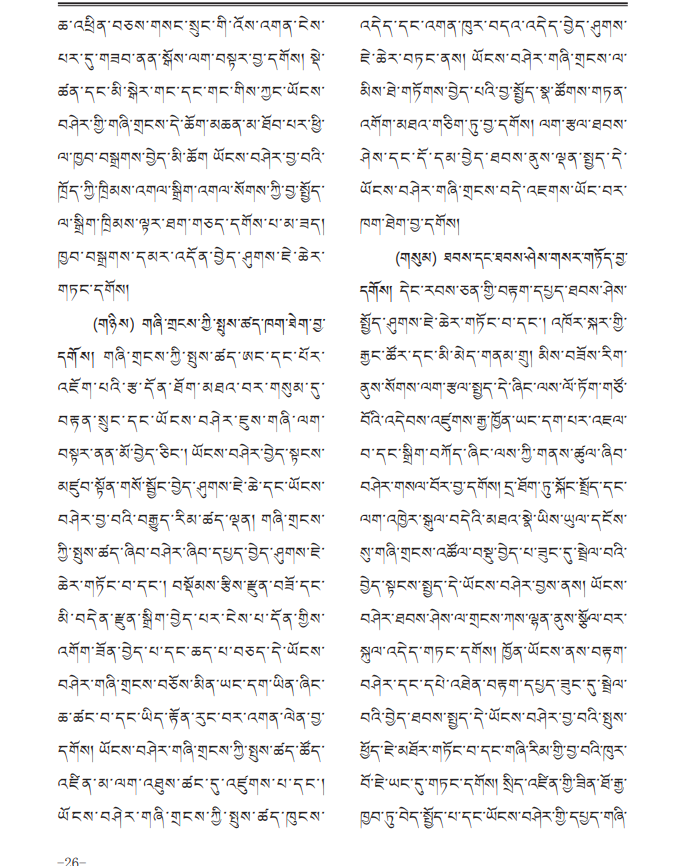 ཆ་འཕྲིན་བཅས་གསང་སྲུང་གི་འོས་འགན་ངེས་
པར་དུ་གཟབ་ནན་སྒོས་ལག་བསྟར་བྱ་དགོས། སྡེ་
ཚན་དང་མི་སྒེར་གང་དང་གང་གིས་ཀྱང་ཡོངས་
བཤེར་གྱི་གཞི་གྲངས་དེ་ཆོག་མཆན་མ་ཐོབ་པར་ཕྱི་
ལ་ཁྱབ་བསྒྲགས་བྱེད་མི་ཆོག ཡོངས་བཤེར་བྱ་བའི་
ཁྲོད་ཀྱི་ཁྲིམས་འགལ་སྒྲིག་འགལ་སོགས་ཀྱི་བྱ་སྤྱོད་
ལ་སྒྲིག་ཁྲིམས་ལྟར་ཐག་གཅད་དགོས་པ་མ་ཟད།
ཁྱབ་བསྒྲགས་དམར་འདོན་བྱེད་ཤུགས་ཇེ་ཆེར་
གཏང་དགོས།
(གཉིས) གཞི་གྲངས་ཀྱི་སྤུས་ཚད་ཁག་ཐེག་བྱ་
དགོས། གཞི་གྲངས་ཀྱི་སྤུས་ཚད་ཨང་དང་པོར་
འཇོག་པའི་རྩ་དོན་ཐོག་མཐའ་བར་གསུམ་དུ་
བརྟན་སྲུང་དང་ཡོངས་བཤེར་ཇུས་གཞི་ལག་
བསྟར་ནན་མོ་བྱེད་ཅིང་། ཡོངས་བཤེར་བྱེད་སྟངས་
མཛུབ་སྟོན་གསོ་སྦྱོང་བྱེད་ཤུགས་ཇེ་ཆེ་དང་ཡོངས་
བཤེར་བྱ་བའི་བརྒྱུད་རིམ་ཚད་ལྡན། གཞི་གྲངས་
ཀྱི་སྤུས་ཚད་ཞིབ་བཤེར་ཞིབ་དཔྱད་བྱེད་ཤུགས་ཇེ་
ཆེར་གཏོང་བ་དང་། བསྡོམས་རྩིས་རྫུན་བཟོ་དང་
མི་བདེན་རྫུན་སྒྲིག་བྱེད་པར་ངེས་པ་དོན་གྱིས་
འགོག་ཟོན་བྱེད་པ་དང་ཆད་པ་བཅད་དེ་ཡོངས་
བཤེར་གཞི་གྲངས་བཅོས་མིན་ཡང་དག་ཡིན་ཞིང་
ཆ་ཚང་བ་དང་ཡིད་རྟོན་རུང་བར་འགན་ལེན་བྱ་
དགོས། ཡོངས་བཤེར་གཞི་གྲངས་ཀྱི་སྤུས་ཚད་ཚོད་
འཛིན་མ་ལག་འཐུས་ཚང་དུ་འཛུགས་པ་དང་།
ཡོངས་བཤེར་གཞི་གྲངས་ཀྱི་སྤུས་ཚད་ཁུངས་
འདེད་དང་འགན་ཁུར་བདའ་འདེད་བྱེད་ཤུགས་
ཇེ་ཆེར་བཏང་ནས། ཡོངས་བཤེར་གཞི་གྲངས་ལ་
མིས་ཐེ་གཏོགས་བྱེད་པའི་བྱ་སྤྱོད་སྣ་ཚོགས་གཏན་
འགོག་མཐའ་གཅིག་ཏུ་བྱ་དགོས། ལག་རྩལ་ཐབས་
ཤེས་དང་དོ་དམ་བྱེད་ཐབས་ནུས་ལྡན་སྤྱད་དེ་
ཡོངས་བཤེར་གཞི་གྲངས་བདེ་འཇགས་ཡོང་བར་
ཁག་ཐེག་བྱ་དགོས།
(གསུམ) ཐབས་དང་ཐབས་ཤེས་གསར་གཏོད་བྱ་
དགོས། དེང་རབས་ཅན་གྱི་བརྟག་དཔྱད་ཐབས་ཤེས་
སྤྱོད་ཤུགས་ཇེ་ཆེར་གཏོང་བ་དང་། འཁོར་སྐར་གྱི་
རྒྱང་ཚོར་དང་མི་མེད་གནམ་གྲུ། མིས་བཟོས་རིག་
ནུས་སོགས་ལག་རྩལ་སྤྱད་དེ་ཞིང་ལས་ལོ་ཏོག་གཙོ་
བོའི་འདེབས་འཛུགས་རྒྱ་ཁྱོན་ཡང་དག་པར་འཇལ་
བ་དང་སྒྲིག་བཀོད་ཞིང་ལས་ཀྱི་གནས་ཚུལ་ཞིབ་
བཤེར་གསལ་པོར་བྱ་དགོས། དྲ་ཐོག་ཏུ་སྐོང་སྤྲོད་དང་
ལག་འཁྱེར་སྒུལ་བདེའི་མཐའ་སྣེ་ཡིས་ཡུལ་དངོས་
སུ་གཞི་གྲངས་འཚོལ་བསྡུ་བྱེད་པ་ཟུང་དུ་སྦྲེལ་བའི་
བྱེད་སྟངས་སྤྱད་དེ་ཡོངས་བཤེར་བྱས་ནས། ཡོངས་
བཤེར་ཐབས་ཤེས་ལ་གྲངས་ཀས་ལྷན་ནུས་སྩོལ་བར་
སྐུལ་འདེད་གཏང་དགོས། ཁྱོན་ཡོངས་ནས་བརྟག་
བཤེར་དང་དཔེ་འཐེན་བརྟག་དཔྱད་ཟུང་དུ་སྦྲེལ་
བའི་བྱེད་ཐབས་སྤྱད་དེ་ཡོངས་བཤེར་བྱ་བའི་སྤུས་
ཕྱོད་ཇེ་མཐོར་གཏོང་བ་དང་གཞི་རིམ་གྱི་བྱ་བའི་ཁུར་
པོ་ཇེ་ཡང་དུ་གཏང་དགོས། སྲིད་འཛིན་གྱི་ཟིན་ཐོ་རྒྱ་
ཁྱབ་ཏུ་བེད་སྤྱོད་པ་དང་ཡོངས་བཤེར་གྱི་དཔྱད་གཞི་
-26-